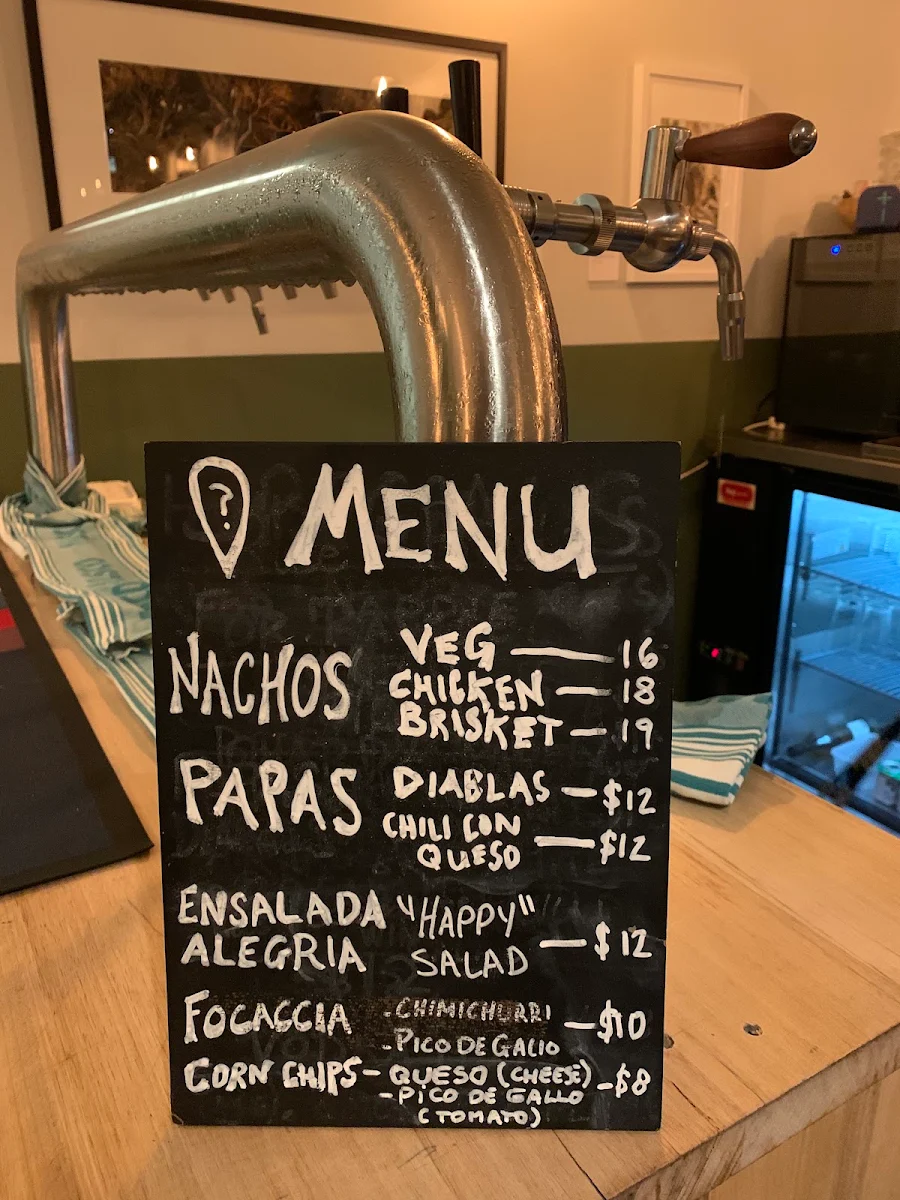 ? MENU
NACHOS VEG — 16
CHICKEN — 18
BRISKET — 19
PAPAS DIABLAS — $12
CHILI CON
QUESO — $12
ENSALADA "HAPPY"
ALEGRIA SALAD — $12
FOCACCIA - CHIMICHURRI — $10
- PICO DE GALIO
CORN CHIPS - QUESO (CHEESE) - $8
- PICO DE GALLO
(TOMATO)